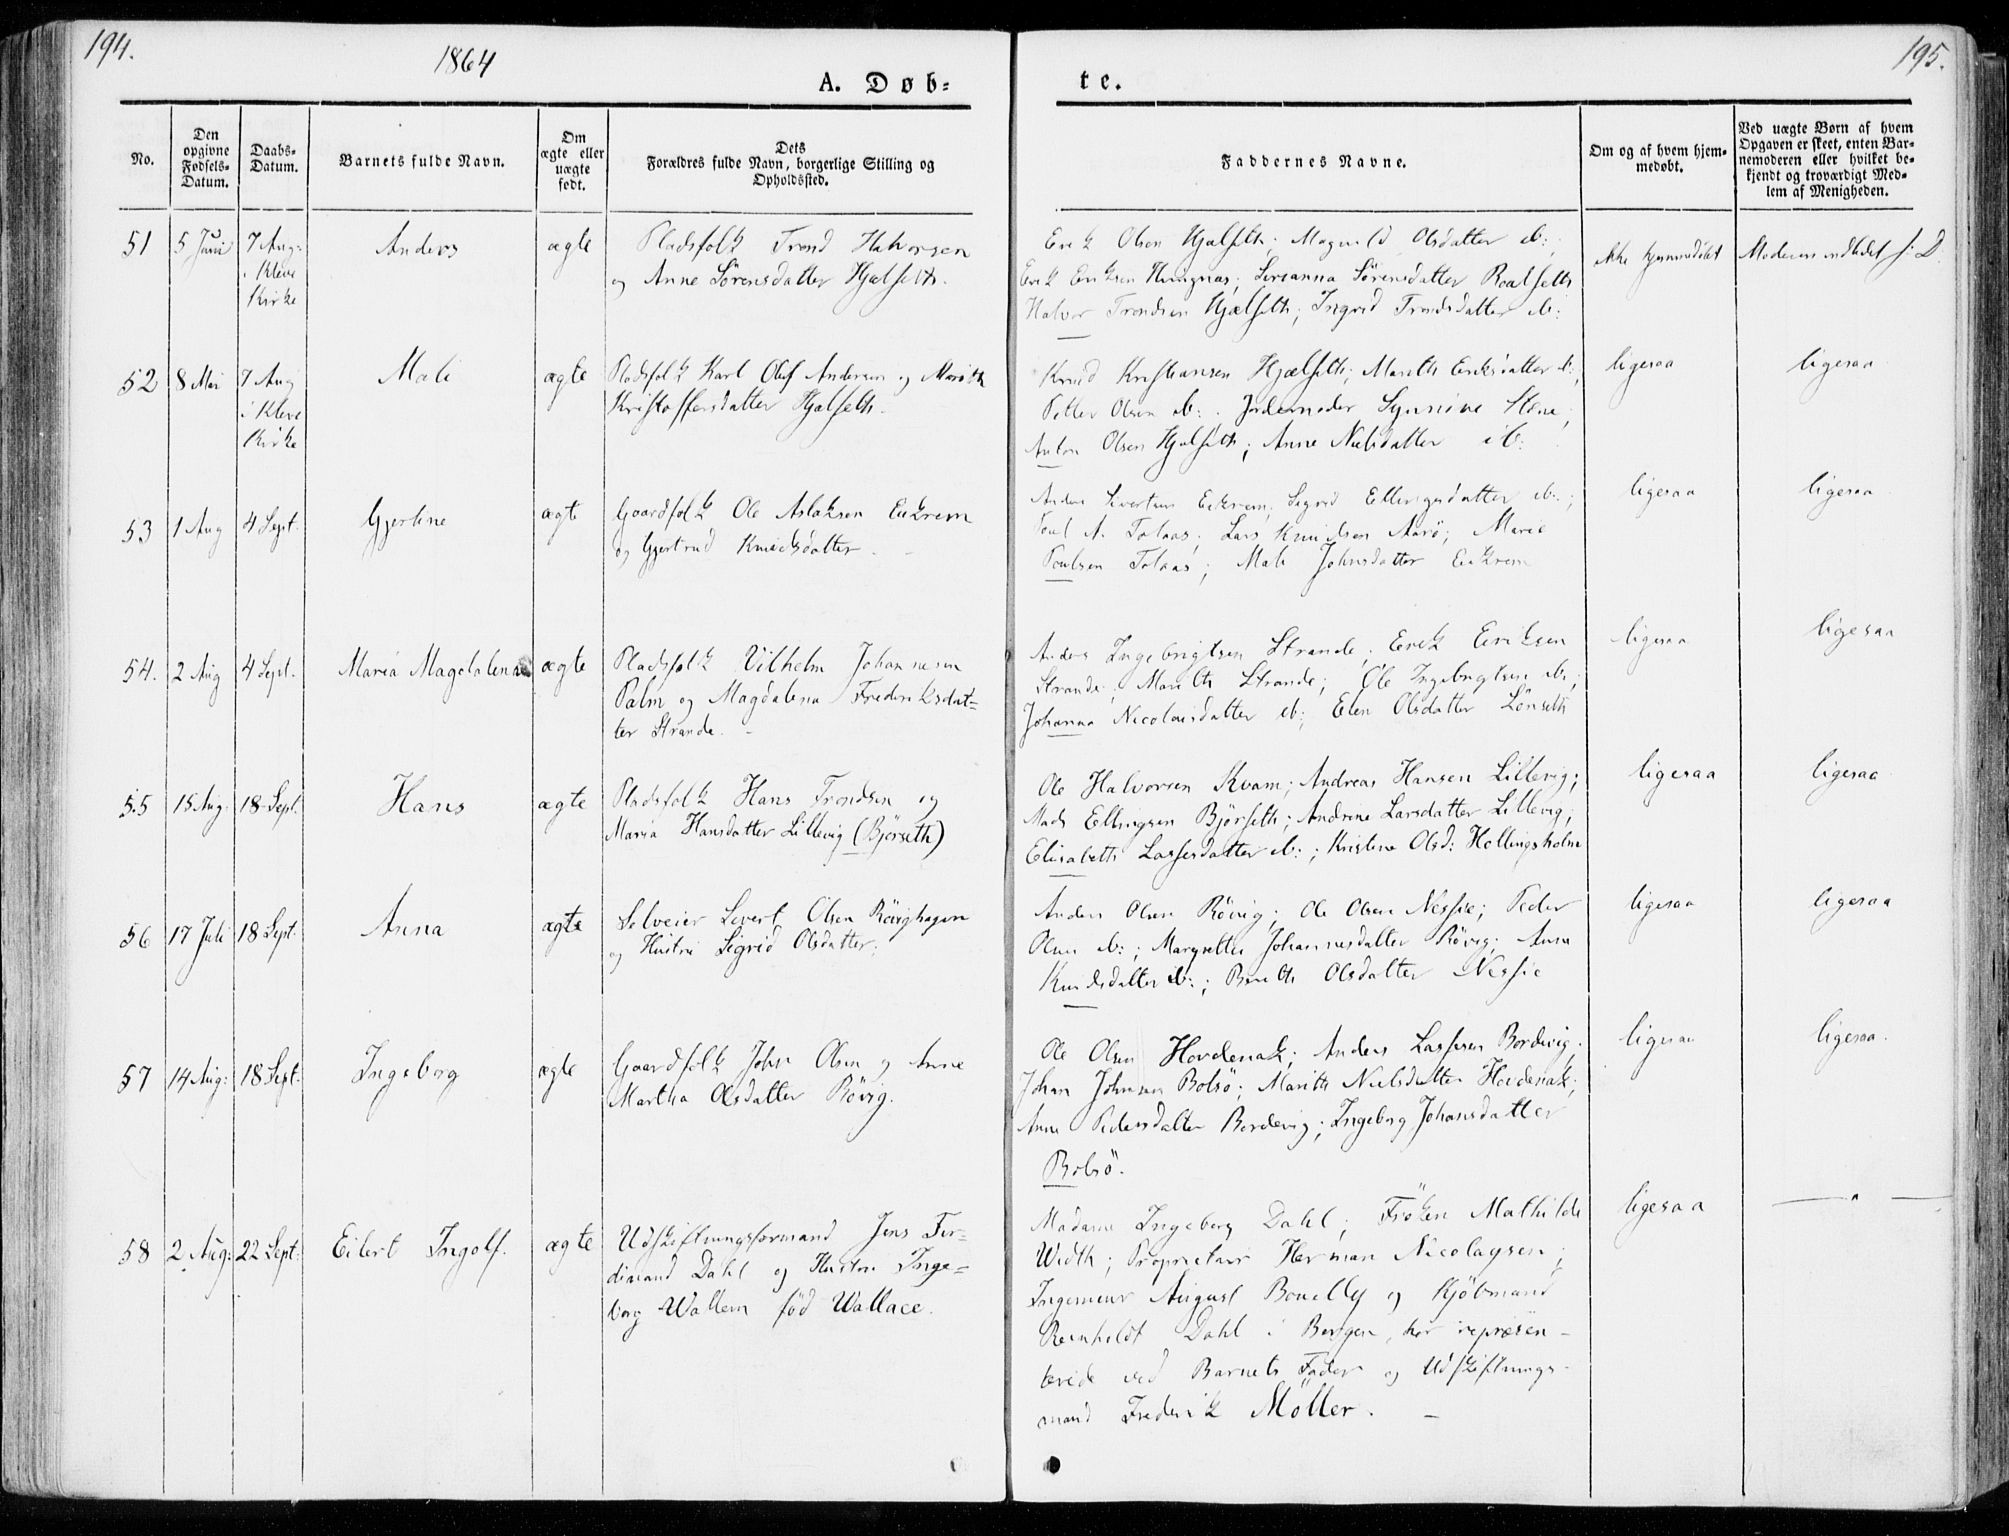 194.
1864
A. Døb=
te.
195.
No.
Den opgivne Fødsels-Datum.
Daabs-Datum.
Barnets fulde Navn.
Om ægte eller uægte født.
Dets Forældres fulde Navn, borgerlige Stilling og Opholdssted.
Faddernes Navne.
Om og af hvem hjem-medøbt.
Ved uægte Børn af hvem Opgaven er skeet, enten Bar-nemoderen eller hvilket be-kjendt og troværdigt Med-lem af Menigheden.
51
5 Juni
7 Aug:
i Kleve
Kirke
Anders
ægte
Pladsfolk Trond Halvorsen
og Anne Sörensdatter Hjælseth.
Erik Olsen Hjælseth; Magnild Olsdatter ib:;
Erik Eriksen; Sörensdatter Roalseth
Halvor Trondsen Hjælseth; Ingrid Trondsdatter ib:
ikke hjemmedöbt
Moderen indledet s. D.
52
8 Mai
7 Aug
i Kleve
Kirke
Mali
ægte
Pladsfolk Karl Oluf Andersen og Marith
Kristoffersdatter Hjælseth.
Knud Kristiansen Hjælseth; Marith Eriksdatter ib:;
Petter Olsen ib:. Jordemoder Synnöve
Anton Olsen Hjælseth; Anne Nielsdatter ib:
ligesaa
ligesaa
53
1 Aug
4 Sept.
Gjertine
ægte
Gaardfolk Ole Aslaksen Eikrem
og Gjertrud Knudsdatter.
Anders Sivertsen Eikrem; Sigrid Ellingsdatter ib:;
Poul A. Tolaas; Lars Knudsen Aarö; Marie
Poulsen Tolaas; Mali Johnsdatter Eikrem
ligesaa
ligesaa
54.
2 Aug
4 Sept.
Maria Magdalena
ægte
Pladsfolk Vilhelm Johannesen
Palm og Magdalena Frederiksdat=
ter Strande.
Anders Ingebrigtsen Strande; Erik Eriksen
Strande; Marith Strande; Ole Ingebrigtsen ib:;
Johanna Nicolaisdatter ib:; Elen Olsdatter Lönseth
ligesaa
ligesaa
55
15 Aug.
18 Sept.
Hans
ægte
Pladsfolk Hans Trondsen og
Maria Hansdatter Lillevig (Björseth)
Ole Halvorsen Kvam; Andreas Hansen Lillevig;
Mads Ellingsen Björseth; Andrine Larsdatter Lillevig;
Elisabeth Lassesdatter ib:; Kristine Olsd: Hollingsholm
ligesaa
ligesaa
56
17 Juli
18 Sept.
Anna
ægte
Selveier Sivert Olsen Rövighagen
og Hustru Sigrid Olsdatter.
Anders Olsen Rövig; Ole Olsen Nessie; Peder
Olsen ib:; Margrethe Johannesdatter Rövig; Anne
Knudsdatter ib:; Olsdatter Nessie
ligesaa
ligesaa
57
14 Aug:
18 Sept.
Ingeborg
ægte
Gaardfolk John Olsen og Anne
Martha Olsdatter Rövig.
Ole Olsen Hovdenak; Anders Lassesen Bordevig;
Johan Johnsen Bolsö; Marith Nielsdatter Hovdenak;
Anne Pedersdatter Bordevig; Ingeborg Johansdatter
Bolsö.
ligesaa
ligesaa.
58
2 Aug:
22 Sept:
Eilert Ingolf.
ægte
Udskiftningsformand Jens Fer=
dinand Dahl og Hustru Inge=
borg Wallem född Wallace.
Madame Ingeborg Dahl; Fröken Mathilde
Width; Proprietair Herman Nicolaysen;
Ingenieur August Bonelly og Kjöbmand
Reinholdt Dahl i Bergen, her repræsen-
terede ved Barnets Fader og Udskiftnings-
mand Frederik Möller.
ligesaa